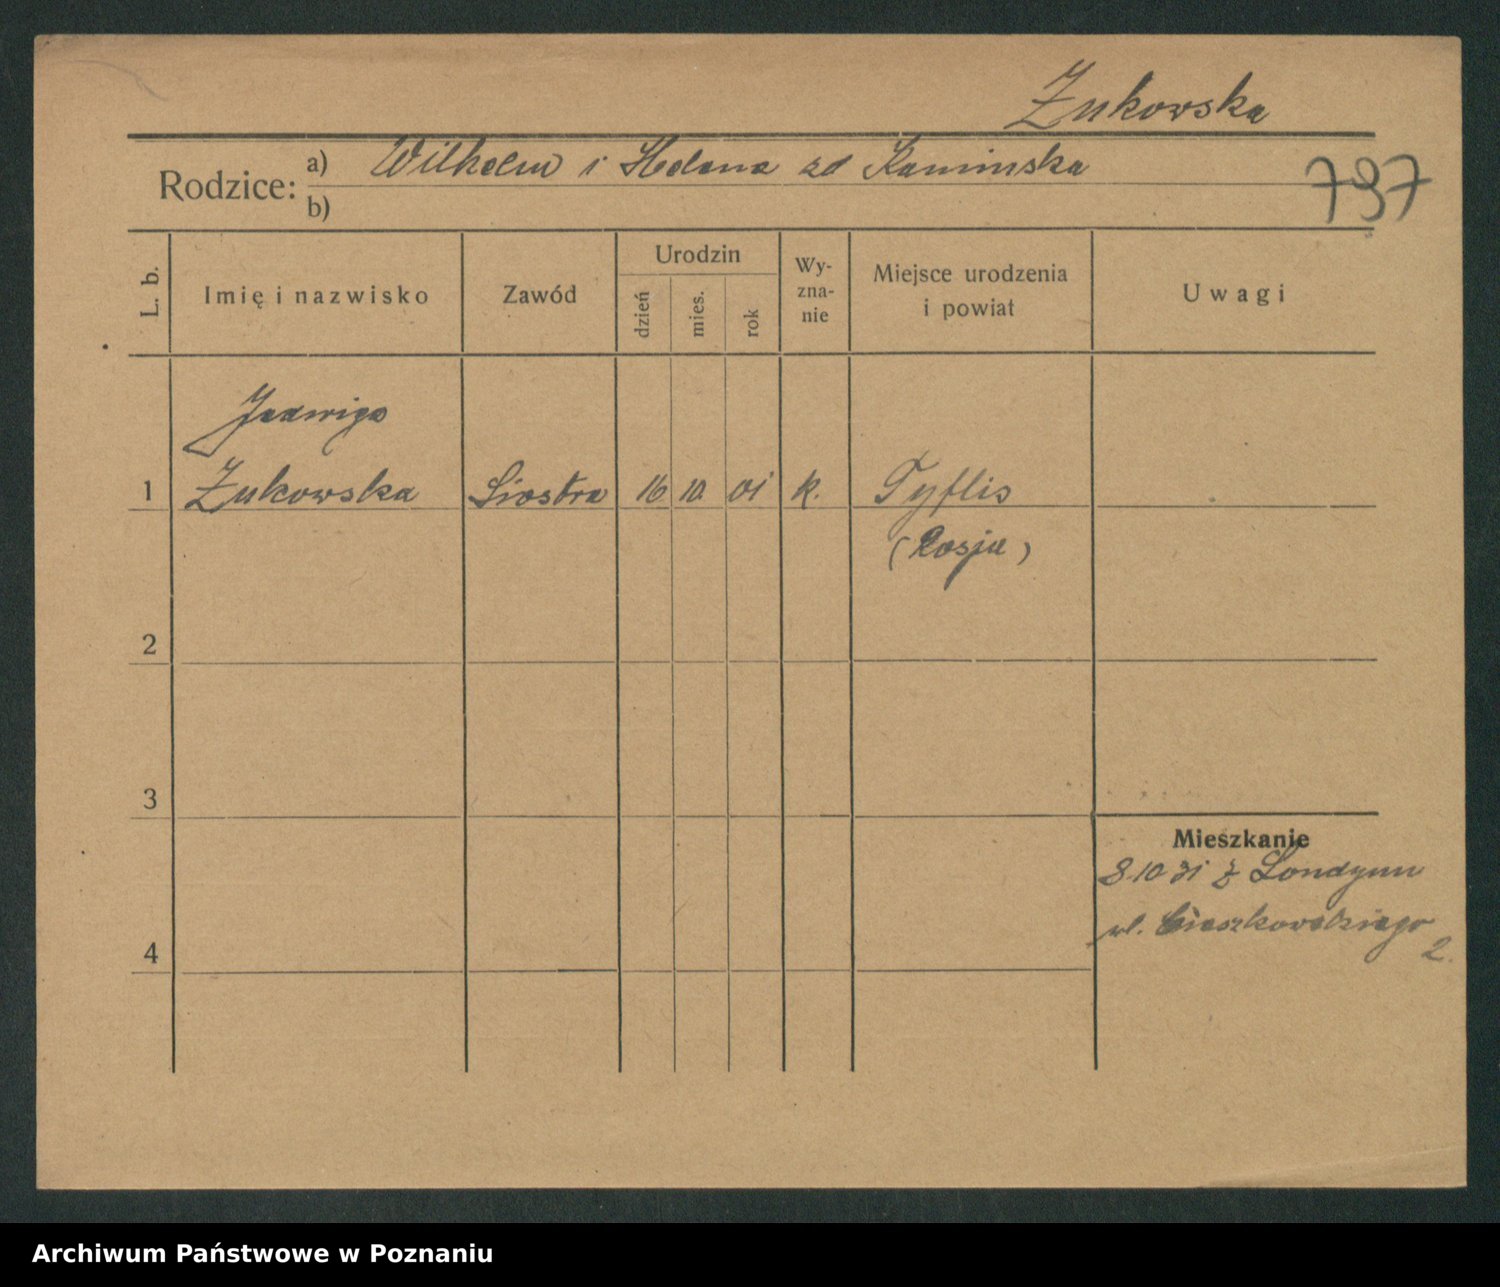 Żukowska
Rodzice: a) Wilhelm i Helena zd Kamińska
b)
797
L. b.
Imię i nazwisko
Zawód
Urodzin
dzień
mies.
rok
Wy-
zna-
nie
Miejsce urodzenia
i powiat
Uwagi
Jadwiga
1 Żukowska Siostra 16 10. 01 k. Tyflis
(Rosja)
2
3
4
Mieszkanie
8.10 31 z Londynu
ul. Cieszkowskiego
2.
Archiwum Państwowe w Poznaniu